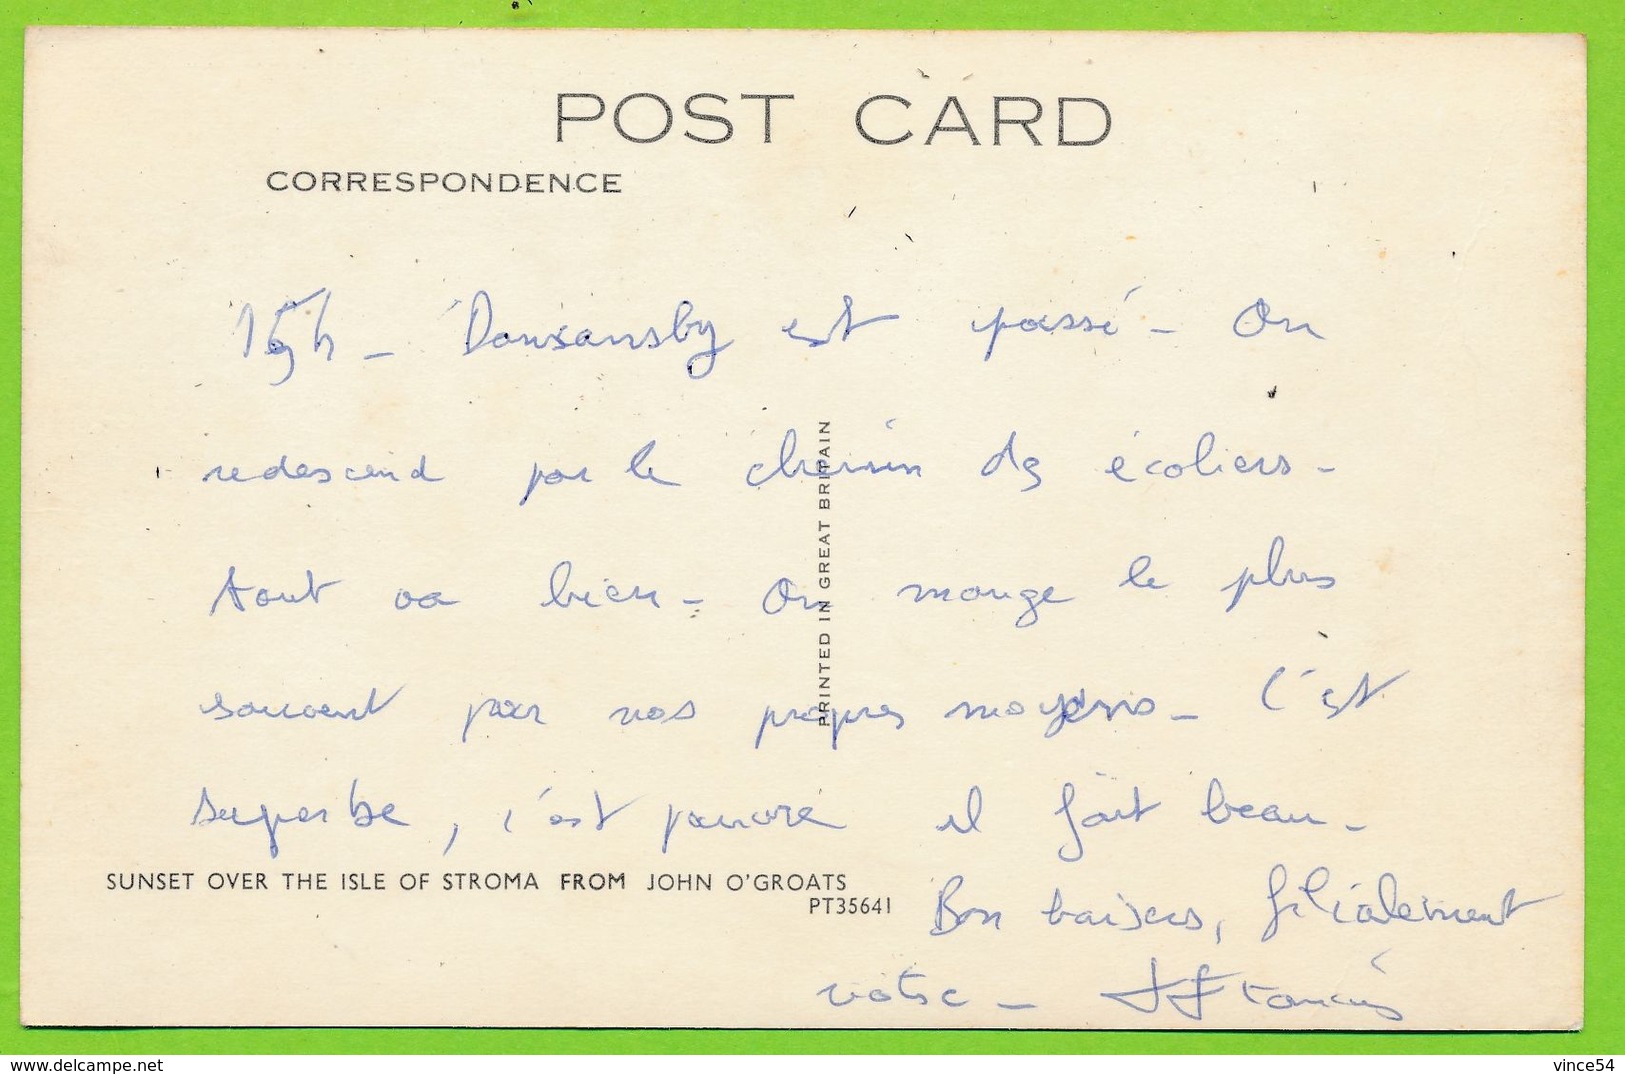 POST CARD
CORRESPONDENCE
15h - Dounsansby est passé - On
redescend par le chemin des écoliers -
tout va bien - On mange le plus
souvent par nos propres moyens - C'est
superbe, c'est pauvre il fait beau -
Bon baisers, filialement
votre -
PRINTED IN GREAT BRITAIN
SUNSET OVER THE ISLE OF STROMA FROM JOHN O'GROATS
PT35641
delcampe.net
vince54